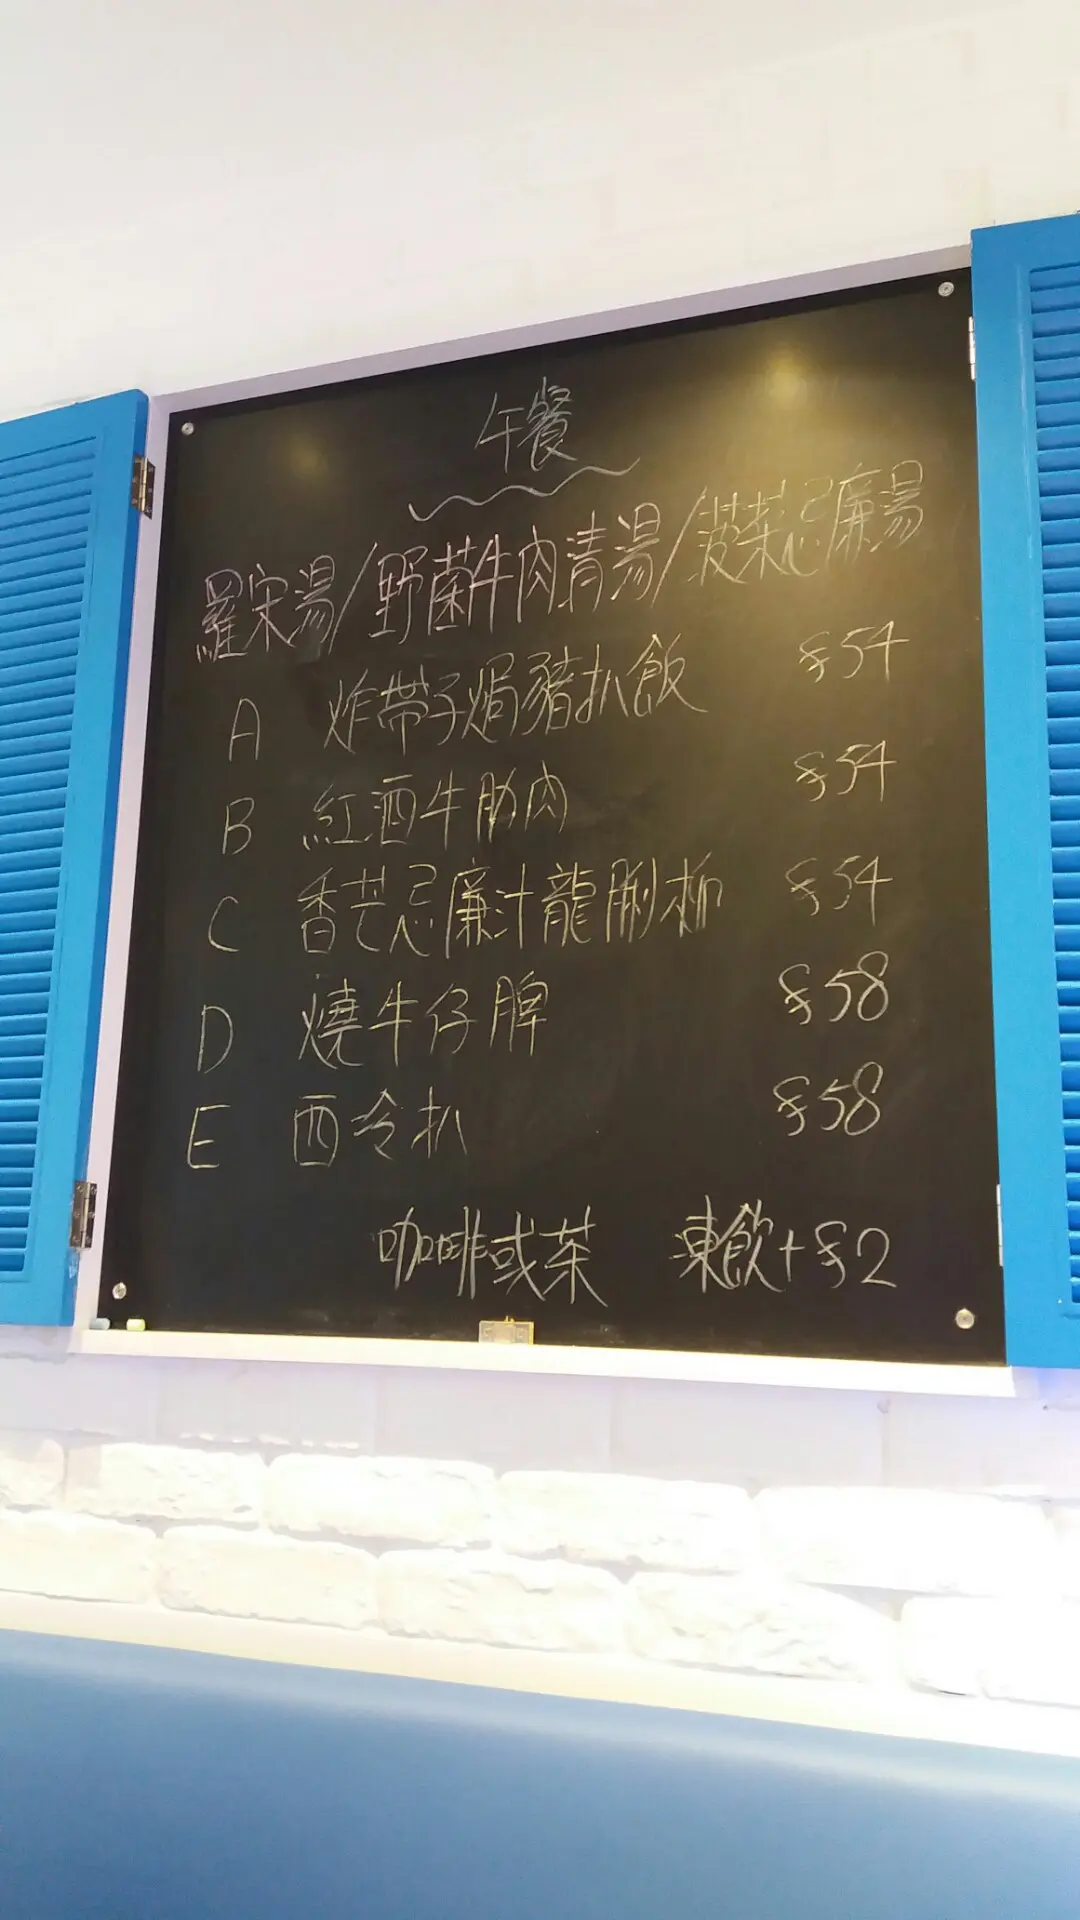 午餐
羅宋湯/野菌牛肉清湯/菠菜忌廉湯
A 炸帶子焗豬扒飯 $54
B 紅酒牛肋肉 $54
C 香芒忌廉汁龍脷柳 $54
D 燒牛仔脾 $58
E 西冷扒 $58
咖啡或茶 凍飲+$2